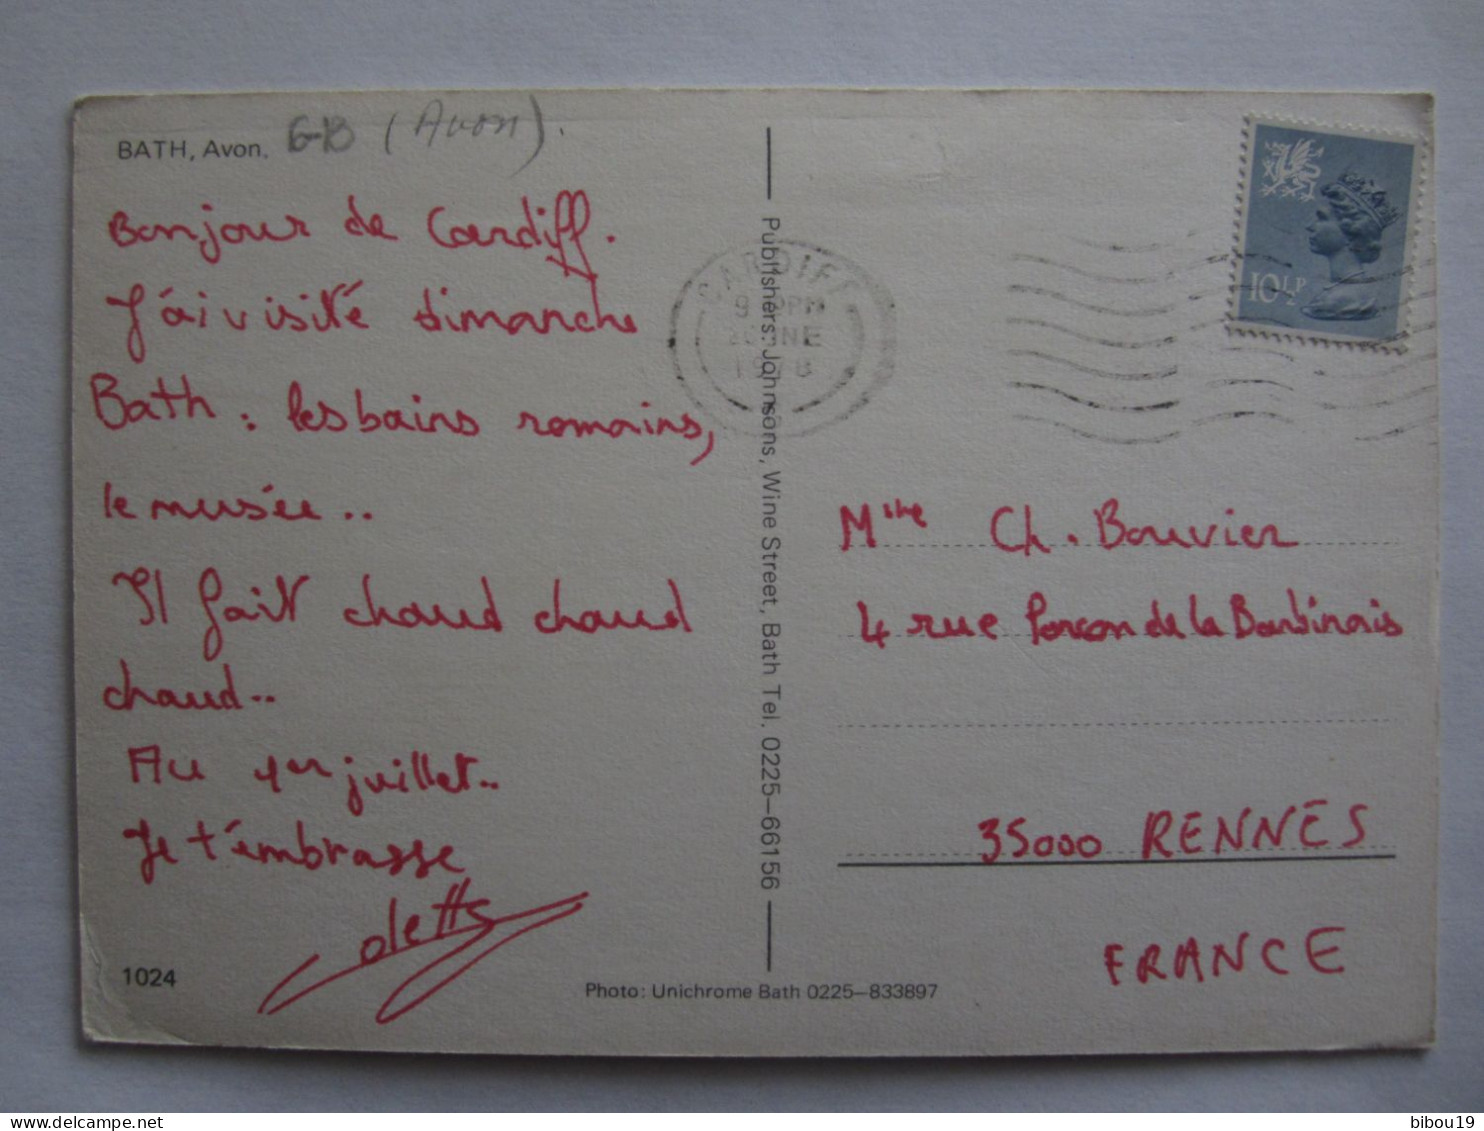 BATH, Avon. G-B (Avon).
Bonjour de Cardiff.
J'ai visité dimanche
Bath : les bains romains,
le musée..
Il fait chaud chaud
chaud..
Au 1er juillet..
Je t'embrasse
Colette
1024
Publishers: Johnsons, Wine Street, Bath Tel. 0225-66156
Photo: Unichrome Bath 0225-833897
CARDIFF
1978
10½P
Mlle Ch. Bouvier
4 rue Porcon de la Barbinais
35000 RENNES
FRANCE
bibou19